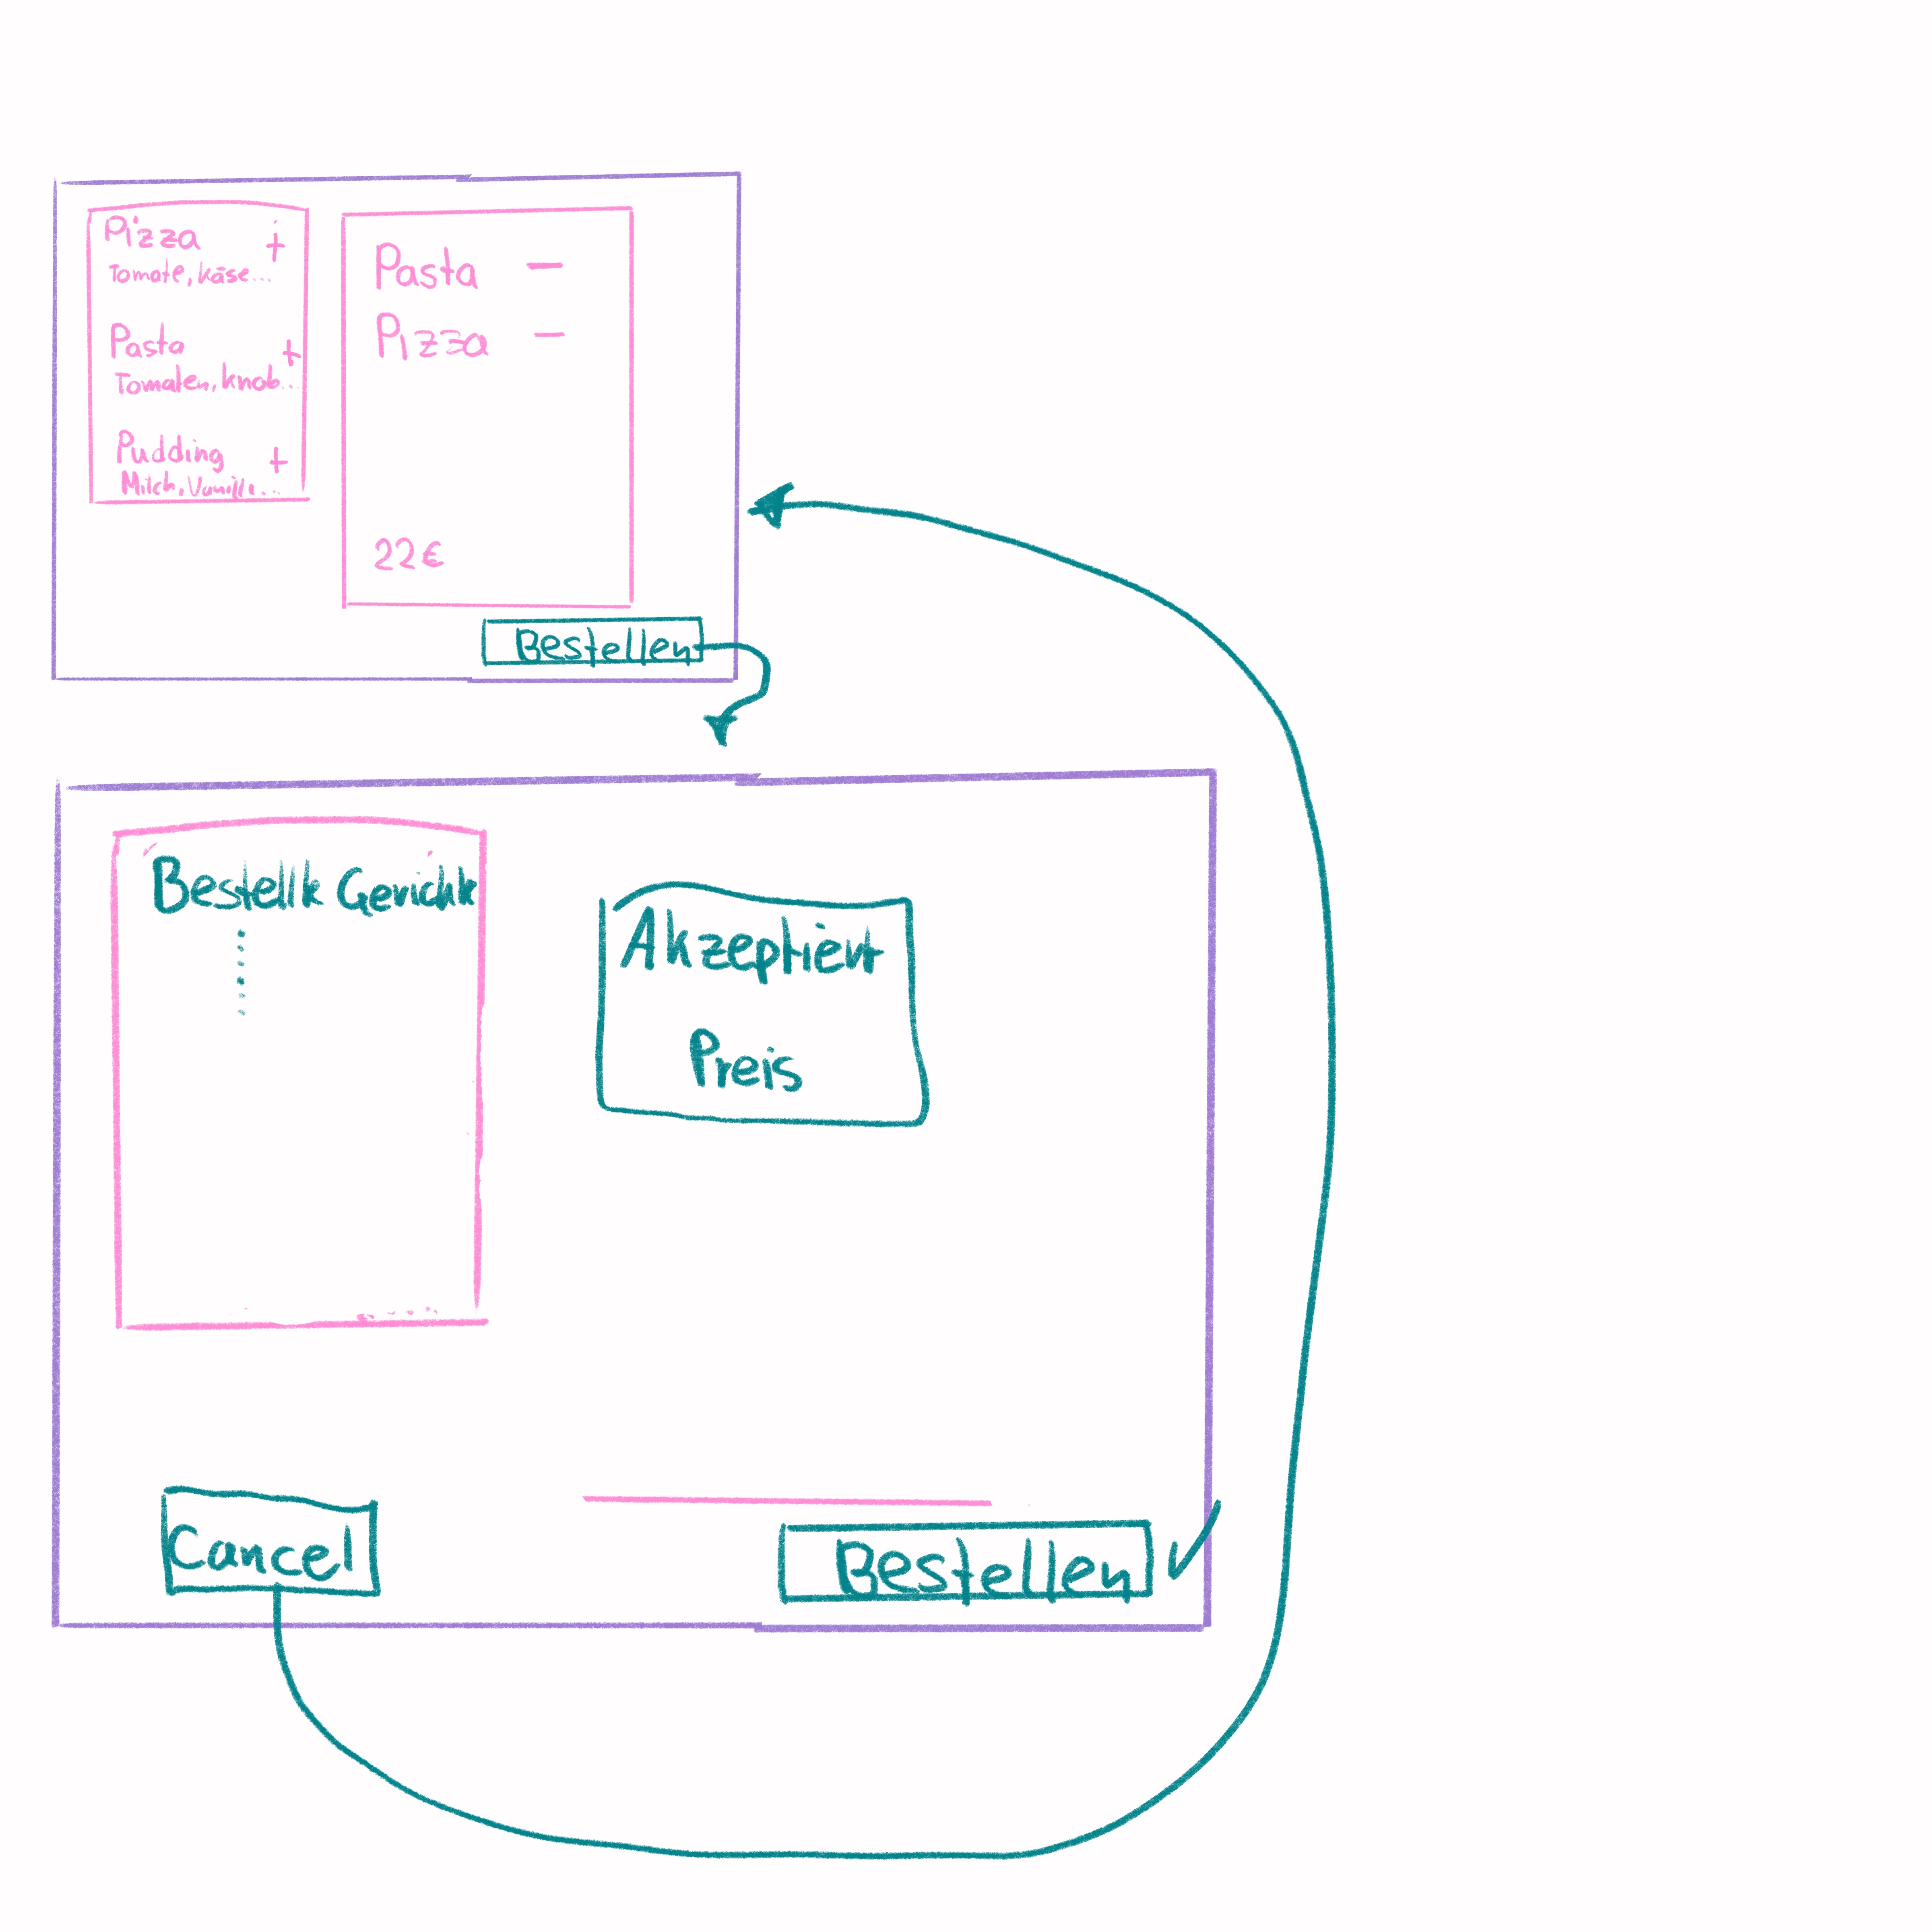 Pizza +
Tomate, Käse...
Pasta +
Tomaten, Knob...
Pudding +
Milch, Vanille...
Pasta -
Pizza -
22€
Bestellen
Bestellte Gerichte
Akzeptiert
Preis
Cancel
Bestellen